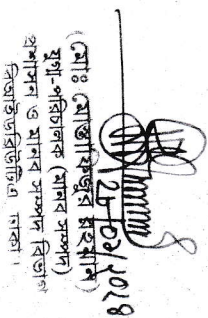 ২৮/০১/২০২৪
(মোঃ মোস্তাফিজুর রহমান)
যুগ্ম-পরিচালক (মানব সম্পদ)
প্রশাসন ও মানব সম্পদ বিভাগ
বিআইডব্লিউটিএ ঢাকা।